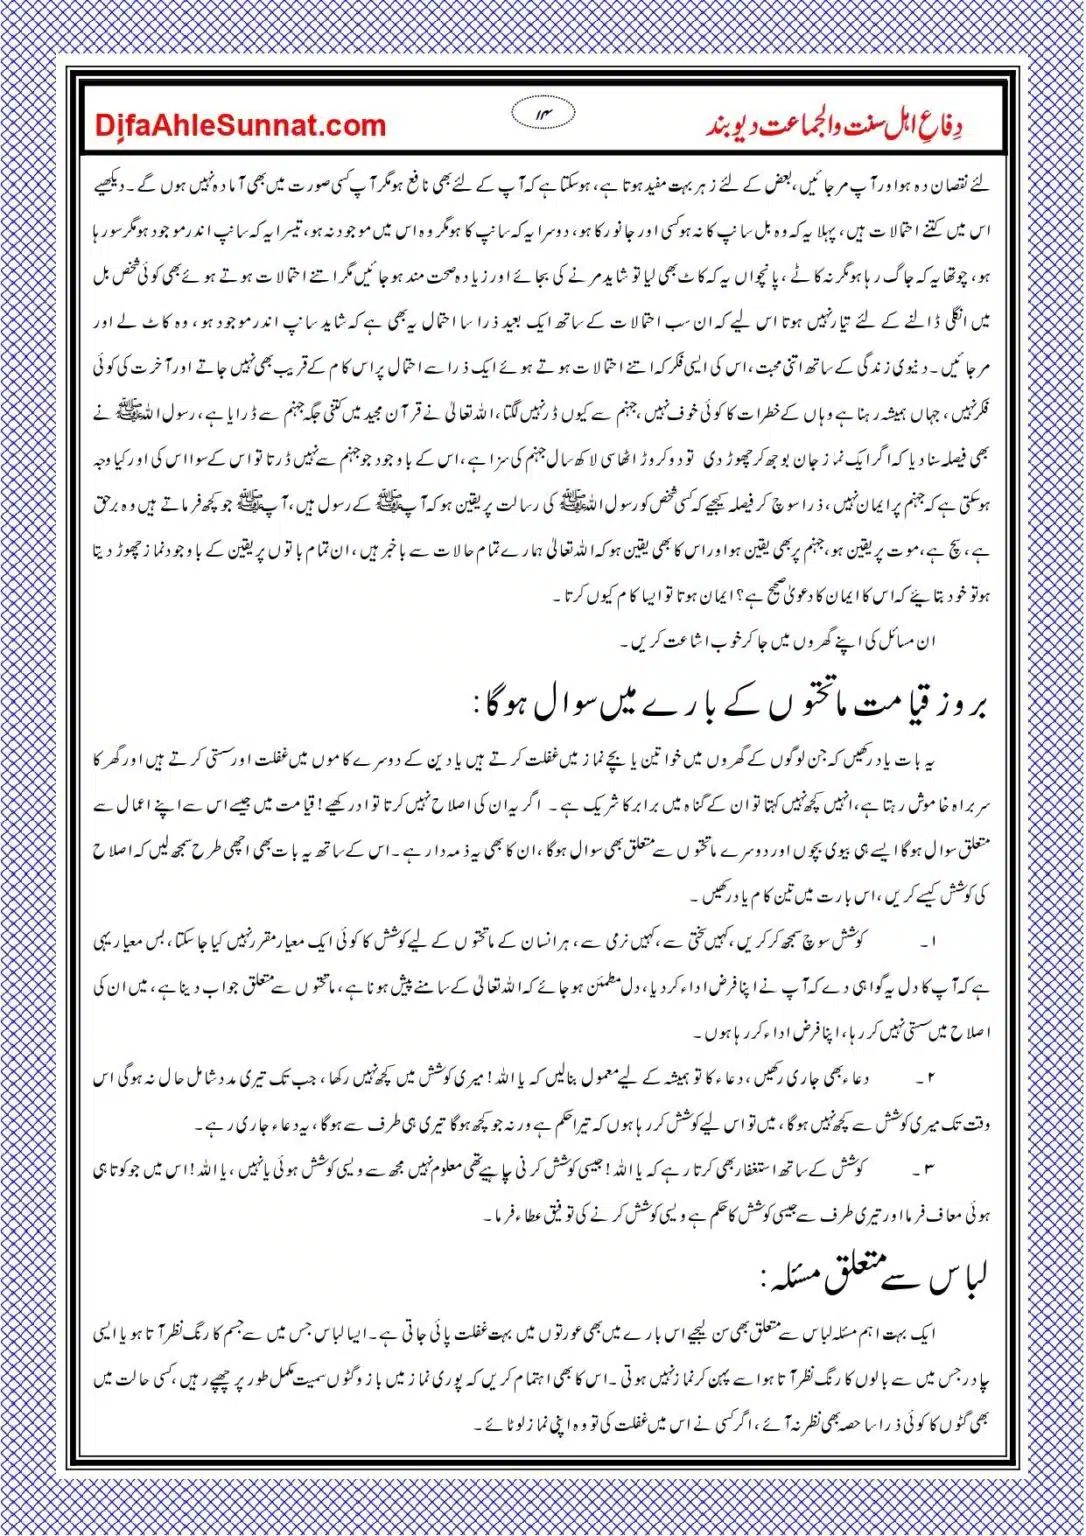 DifaAhleSunnat.com
۱۴
دِفاعِ اہل سنت والجماعت دیوبند
لئے نقصان دہ ہو اور آپ مر جائیں، بعض کے لئے زہر بہت مفید ہوتا ہے، ہوسکتا ہے کہ آپ کے لئے بھی نافع ہو مگر آپ کسی صورت میں بھی آمادہ نہیں ہوں گے۔ دیکھیے
اس میں کتنے احتمالات ہیں، پہلا یہ کہ وہ بل سانپ کا نہ ہو کسی اور جانور کا ہو، دوسرا یہ کہ سانپ کا ہو مگر وہ اس میں موجود نہ ہو، تیسرا یہ کہ سانپ اندر موجود ہو مگر سو رہا
ہو، چوتھا یہ کہ جاگ رہا ہو مگر نہ کاٹے، پانچواں یہ کہ کاٹ بھی لیا تو شاید مرنے کی بجائے اور زیادہ صحت مند ہو جائیں مگر اتنے احتمالات ہوتے ہوئے بھی کوئی شخص بل
میں انگلی ڈالنے کے لئے تیار نہیں ہوتا اس لیے کہ ان سب احتمالات کے ساتھ ایک بعید ذرا سا احتمال یہ بھی ہے کہ شاید سانپ اندر موجود ہو، وہ کاٹ لے اور
مر جائیں۔ دنیوی زندگی کے ساتھ اتنی محبت، اس کی ایسی فکر کہ اتنے احتمالات ہوتے ہوئے ایک ذرا سے احتمال پر اس کام کے قریب بھی نہیں جاتے اور آخرت کی کوئی
فکر نہیں، جہاں ہمیشہ رہنا ہے وہاں کے خطرات کا کوئی خوف نہیں، جہنم سے کیوں ڈر نہیں لگتا، اللہ تعالیٰ نے قرآن مجید میں کتنی جگہ جہنم سے ڈرایا ہے، رسول اللہ ﷺ نے
بھی فیصلہ سنا دیا کہ اگر ایک نماز جان بوجھ کر چھوڑ دی تو دو کروڑ اٹھاسی لاکھ سال جہنم کی سزا ہے، اس کے باوجود جو جہنم سے نہیں ڈرتا تو اس کے سوا اس کی اور کیا وجہ
ہوسکتی ہے کہ جہنم پر ایمان نہیں، ذرا سوچ کر فیصلہ کیجیے کہ کسی شخص کو رسول اللہ ﷺ کی رسالت پر یقین ہو کہ آپ ﷺ کے رسول ہیں، آپ ﷺ جو کچھ فرماتے ہیں وہ برحق
ہے، سچ ہے، موت پر یقین ہو، جہنم پر بھی یقین ہو اور اس کا بھی یقین ہو کہ اللہ تعالیٰ ہمارے تمام حالات سے باخبر ہیں، ان تمام باتوں پر یقین کے باوجود نماز چھوڑ دیتا
ہو تو خود بتایئے کہ اس کا ایمان کا دعویٰ صحیح ہے؟ ایمان ہوتا تو ایسا کام کیوں کرتا۔
ان مسائل کی اپنے گھروں میں جا کر خوب اشاعت کریں۔
بروز قیامت ماتحتوں کے بارے میں سوال ہوگا:
یہ بات یاد رکھیں کہ جن لوگوں کے گھروں میں خواتین یا بچے نماز میں غفلت کرتے ہیں یا دین کے دوسرے کاموں میں غفلت اور سستی کرتے ہیں اور گھر کا
سربراہ خاموش رہتا ہے، انہیں کچھ نہیں کہتا تو ان کے گناہ میں برابر کا شریک ہے۔ اگر یہ ان کی اصلاح نہیں کرتا تو ادر کھیے! قیامت میں جیسے اس سے اپنے اعمال سے
متعلق سوال ہوگا ایسے ہی بیوی بچوں اور دوسرے ماتحتوں سے متعلق بھی سوال ہوگا، ان کا بھی یہ ذمہ دار ہے۔ اس کے ساتھ یہ بات بھی اچھی طرح سمجھ لیں کہ اصلاح
کی کوشش کیسے کریں، اس بارت میں تین کام یاد رکھیں۔
۱۔ کوشش سوچ سمجھ کر کریں، کہیں سختی سے، کہیں نرمی سے، ہر انسان کے ماتحتوں کے لیے کوشش کا کوئی ایک معیار مقرر نہیں کیا جاسکتا، بس معیار یہی
ہے کہ آپ کا دل یہ گواہی دے کہ آپ نے اپنا فرض اداء کر دیا، دل مطمئن ہو جائے کہ اللہ تعالیٰ کے سامنے پیش ہونا ہے، ماتحتوں سے متعلق جواب دینا ہے، میں ان کی
اصلاح میں سستی نہیں کر رہا، اپنا فرض اداء کر رہا ہوں۔
۲۔ دعاء بھی جاری رکھیں، دعاء کا تو ہمیشہ کے لیے معمول بنالیں کہ یا اللہ! میری کوشش میں کچھ نہیں رکھا، جب تک تیری مدد شامل حال نہ ہوگی اس
وقت تک میری کوشش سے کچھ نہیں ہوگا، میں تو اس لیے کوشش کر رہا ہوں کہ تیرا حکم ہے ورنہ جو کچھ ہوگا تیری ہی طرف سے ہوگا، یہ دعاء جاری رہے۔
۳۔ کوشش کے ساتھ استغفار بھی کرتا رہے کہ یا اللہ! جیسی کوشش کرنی چاہیے تھی معلوم نہیں مجھ سے ویسی کوشش ہوئی یا نہیں، یا اللہ! اس میں جو کوتاہی
ہوئی معاف فرما اور تیری طرف سے جیسی کوشش کا حکم ہے ویسی کوشش کرنے کی توفیق عطاء فرما۔
لباس سے متعلق مسئلہ:
ایک بہت اہم مسئلہ لباس سے متعلق بھی سن لیجیے اس بارے میں بھی عورتوں میں بہت غفلت پائی جاتی ہے۔ ایسا لباس جس میں سے جسم کا رنگ نظر آتا ہو یا ایسی
چادر جس میں سے بالوں کا رنگ نظر آتا ہو اسے پہن کر نماز نہیں ہوتی۔ اس کا بھی اہتمام کریں کہ پوری نماز میں بازو گٹوں سمیت مکمل طور پر چھپے رہیں، کسی حالت میں
بھی گٹوں کا کوئی ذرا سا حصہ بھی نظر نہ آئے، اگر کسی نے اس میں غفلت کی تو وہ اپنی نماز لوٹائے۔